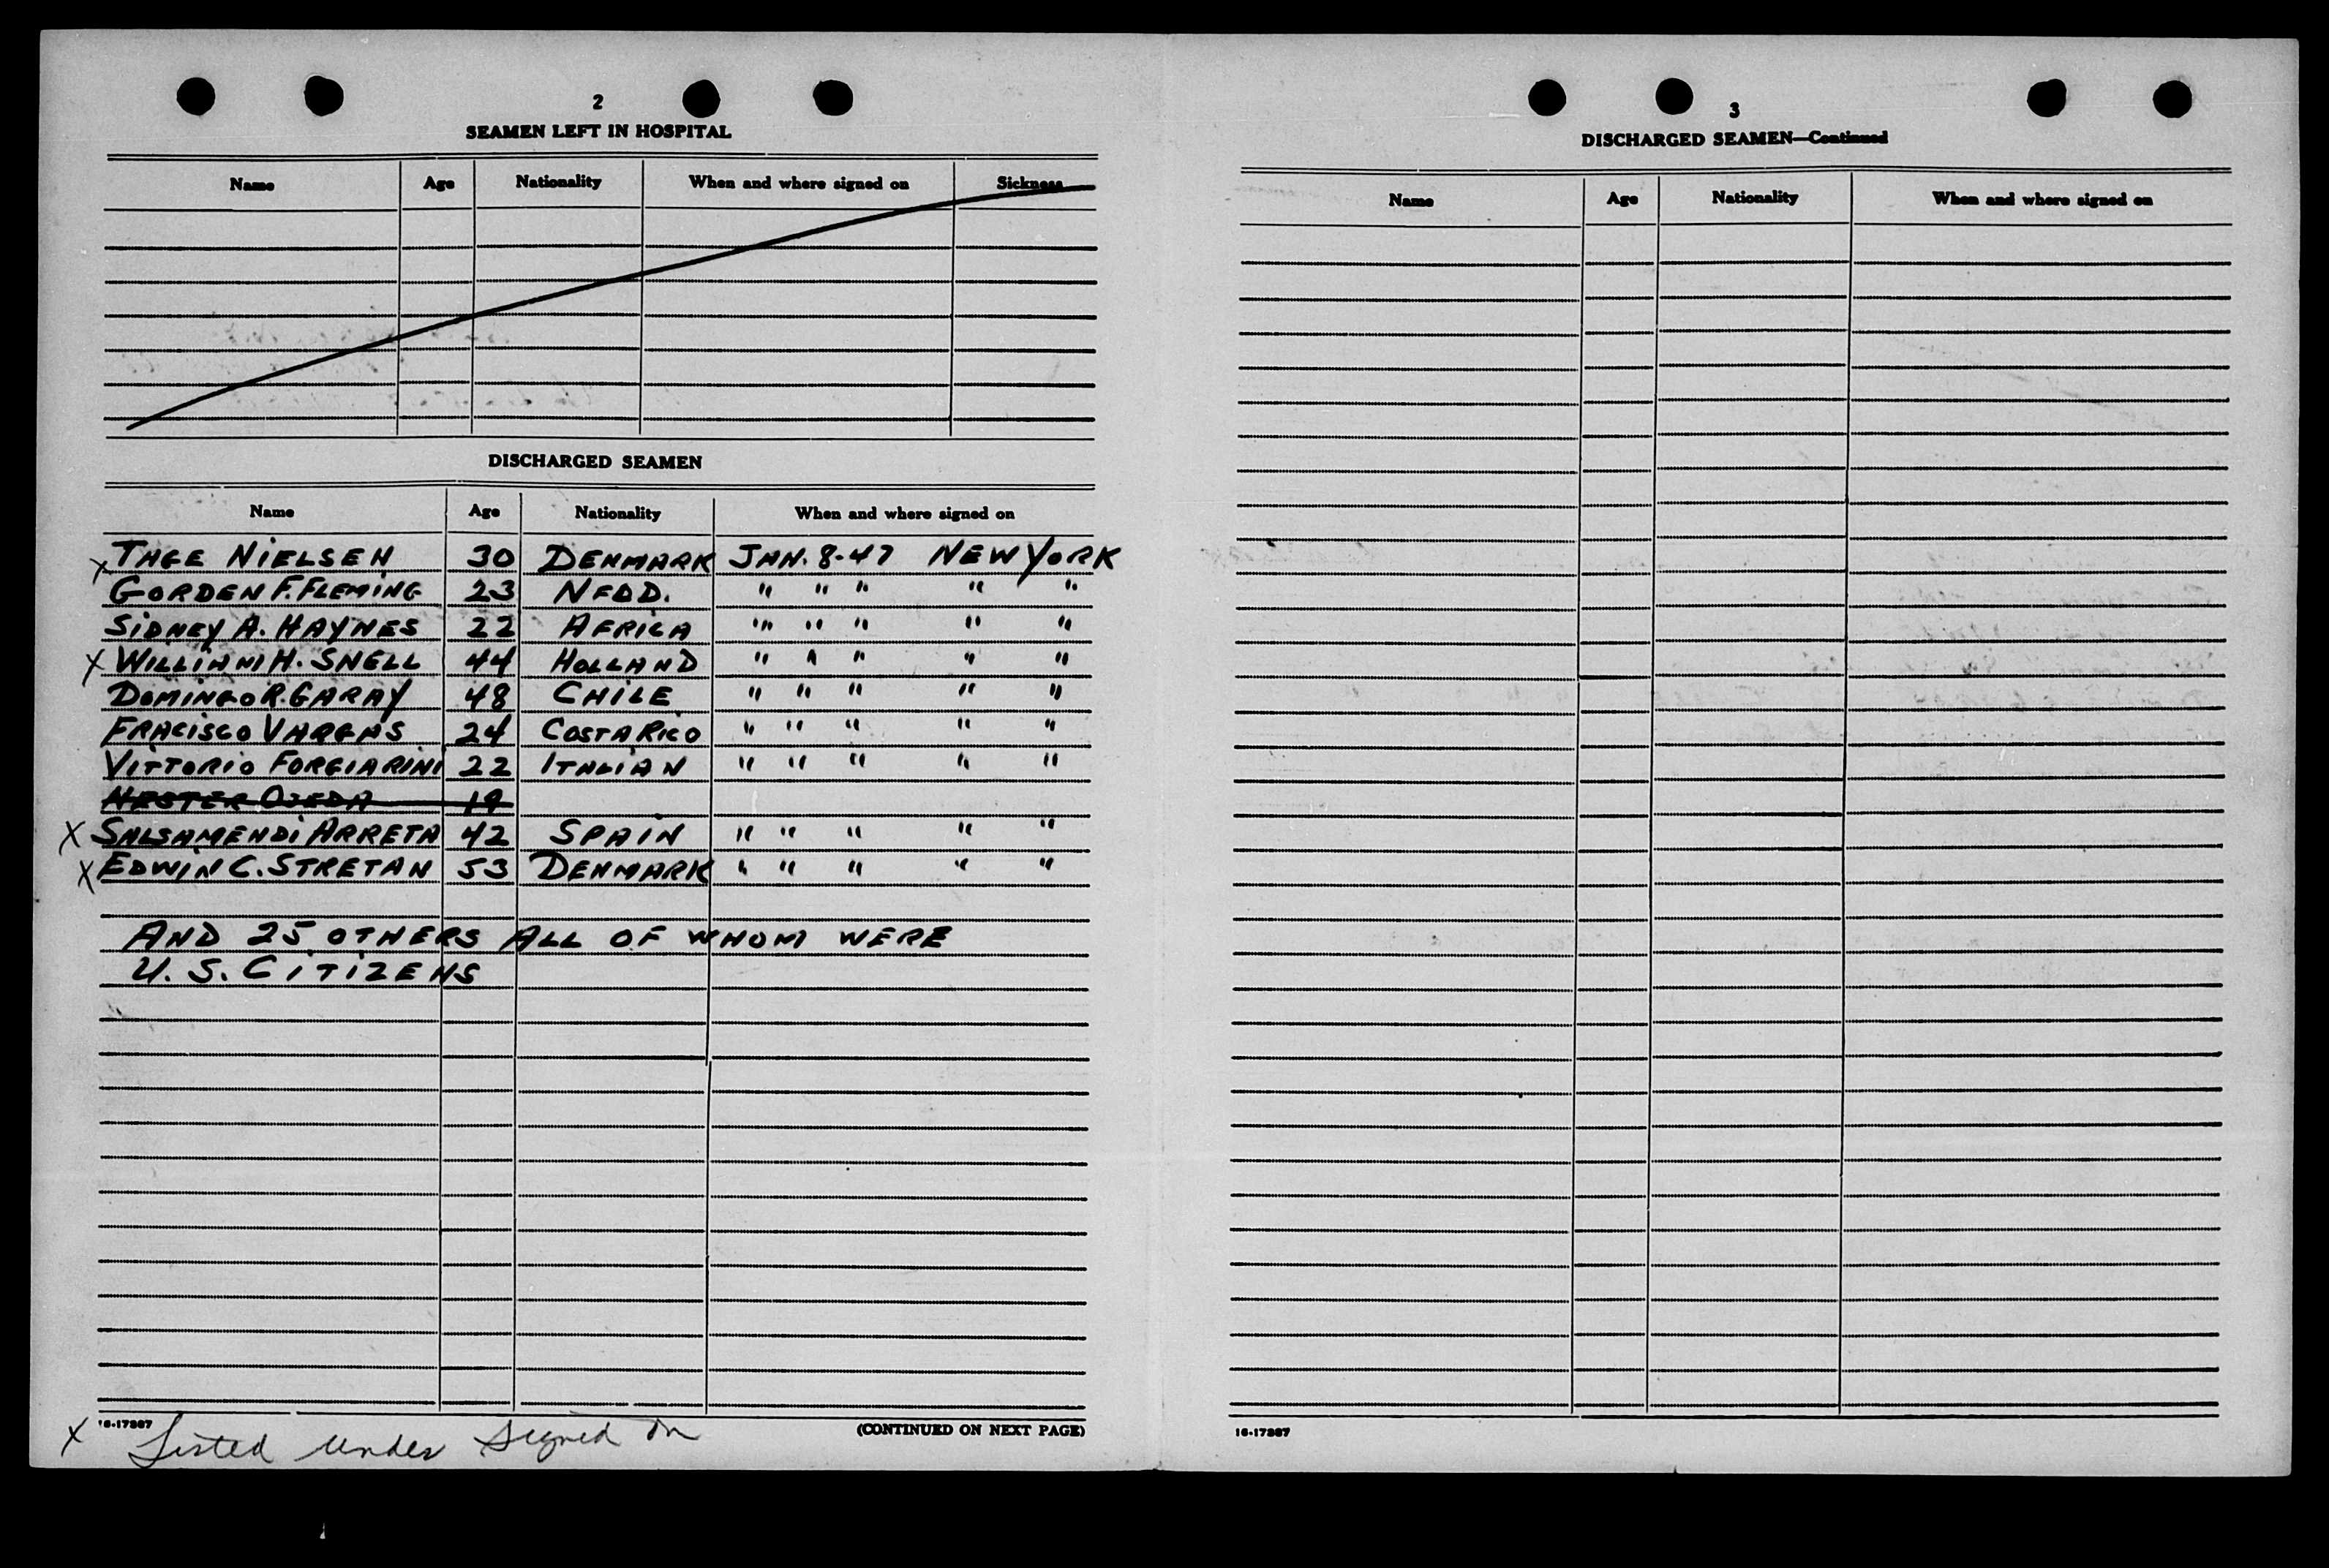 2
SEAMEN LEFT IN HOSPITAL
Name Age Nationality When and where signed on Sickness
DISCHARGED SEAMEN
Name Age Nationality When and where signed on
x TAGE NIELSEN 30 DENMARK JAN. 8-47 NEW YORK
GORDEN F. FLEMING 23 NFDD. " " " " "
SIDNEY A. HAYNES 22 AFRICA " " " " "
x WILLIAM H. SNELL 44 HOLLAND " " " " "
DOMINGO R. GARAY 48 CHILE " " " " "
FRACISCO VARGAS 24 COSTA RICO " " " " "
VITTORIO FORGIARINI 22 ITALIAN " " " " "
NESTER OJEDA 19
x SALSAMENDI ARRETA 42 SPAIN " " " " "
x EDWIN C. STRETAN 53 DENMARK " " " " "
AND 25 OTHERS ALL OF WHOM WERE
U. S. CITIZENS
16-17887 (CONTINUED ON NEXT PAGE)
x Listed under signed on
3
DISCHARGED SEAMEN—Continued
Name Age Nationality When and where signed on
16-17887